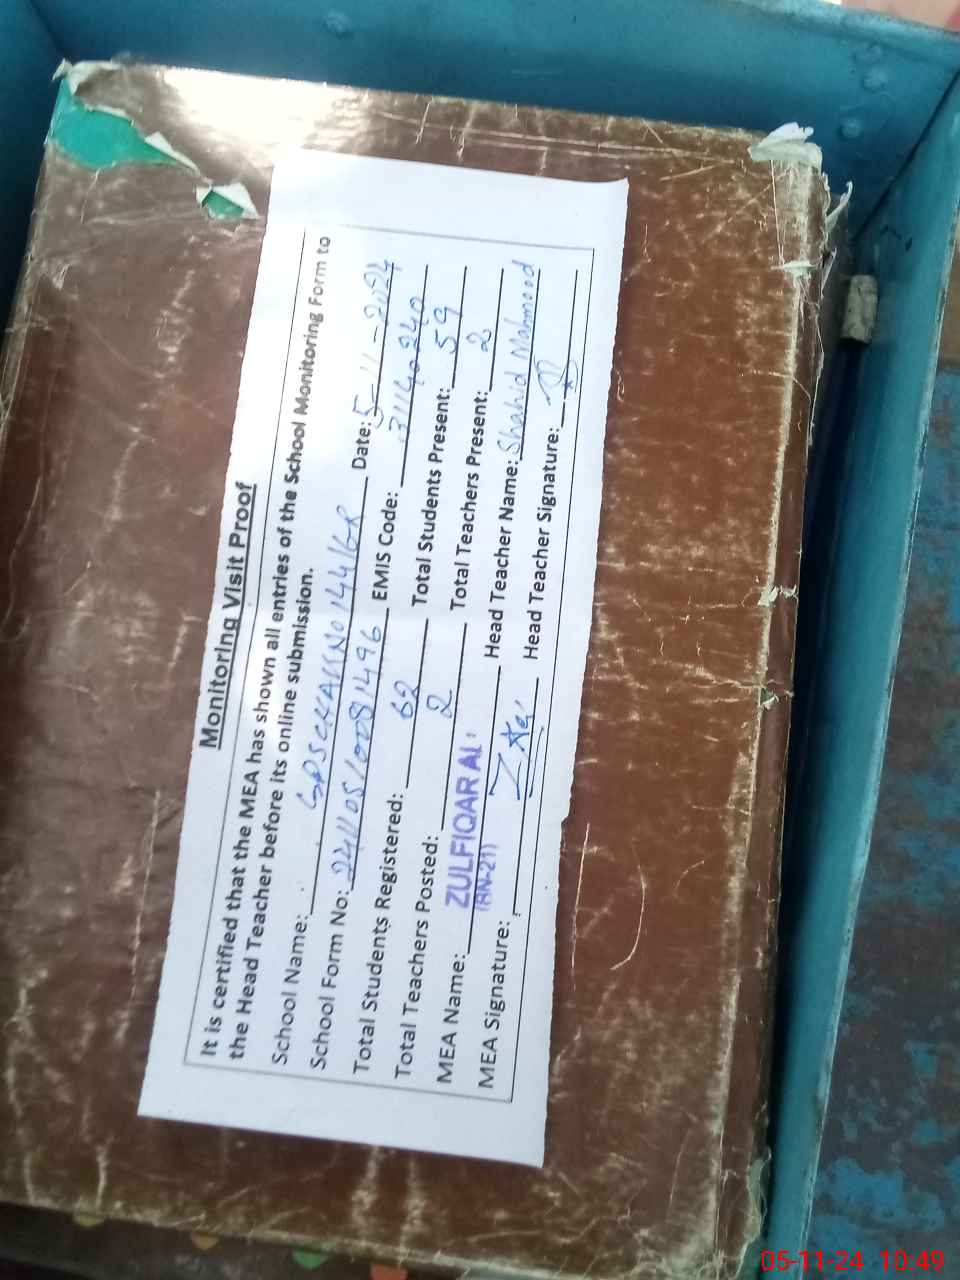 Monitoring Visit Proof
It is certified that the MEA has shown all entries of the School Monitoring Form to
the Head Teacher before its online submission.
School Name: GPS CHAK NO 144/GR Date: 5-11-2024
School Form No: 24110510081496 EMIS Code: 31140240
Total Students Registered: 62 Total Students Present: 59
Total Teachers Posted: 2 Total Teachers Present: 2
MEA Name: ZULFIQAR ALI Head Teacher Name: Shahid Mahmood
(BN-211)
MEA Signature: Head Teacher Signature:
05-11-24 10:49